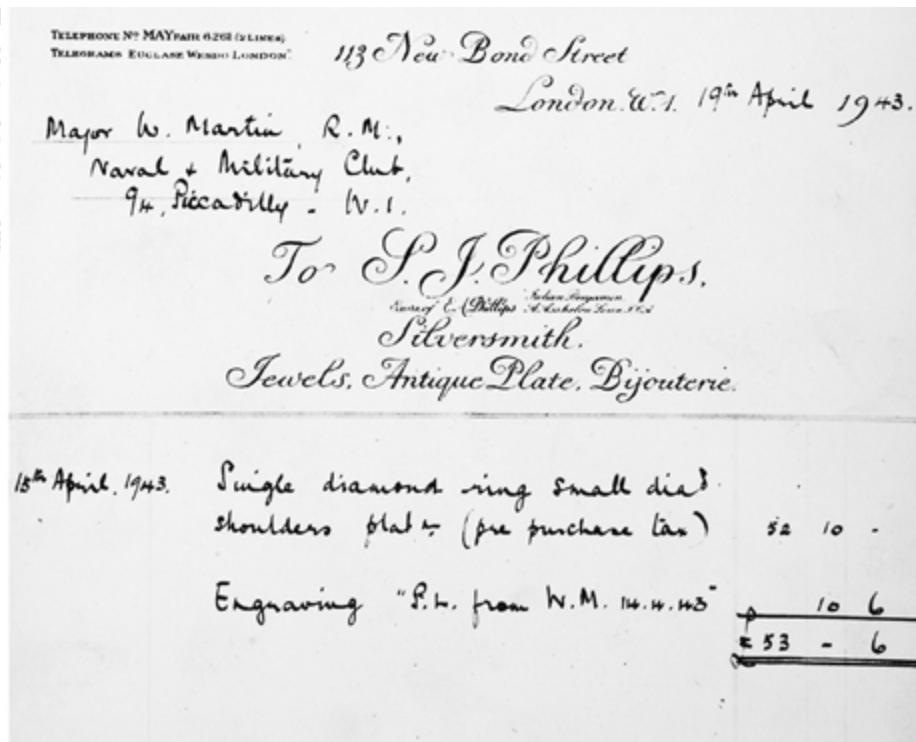 TELEPHONE Nº MAYFAIR 6261 (2 LINES)
TELEGRAMS EUGLASE WESDO LONDON.
113 New Bond Street
London. W.1. 19th April 1943.
Major W. Martin, R.M.,
Naval & Military Club,
94, Piccadilly - W.1.
To S. J. Phillips,
Phillips
Silversmith.
Jewels, Antique Plate, Bijouterie.
15th April, 1943. Single diamond ring small diad
shoulders (pre purchase tax) 52 10 -
Engraving "P.L. from W.M. 14.4.43" 10 6
£ 53 - 6